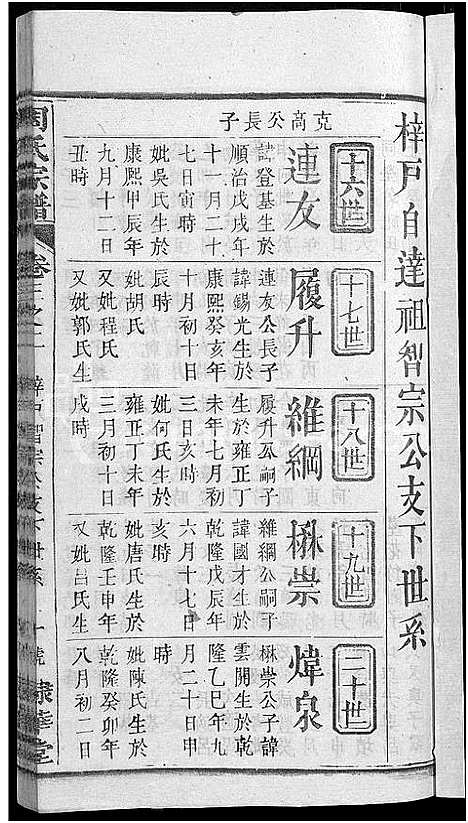 梓戶自達祖智宗公支下世系
十六世
克高公長子
連友
諱登基生於
順治戊戌年
十一月二十
七日寅時
妣吳氏生於
康熙甲辰年
九月十二日
丑時
十七世
履升
連友公長子
諱錫光生於
康熙癸亥年
十月初十日
辰時
妣胡氏
又妣程氏
又妣郭氏生
十八世
維綱
履升公嗣子
生於雍正丁
未年七月初
三日亥時
妣何氏生於
雍正丁未年
三月初十日
戌時
十九世
楙崇
維綱公嗣子
諱國才生於
乾隆戊辰年
六月十七日
亥時
妣唐氏生於
乾隆壬申年
又妣呂氏生
二十世
煒泉
楙崇公子諱
雲開生於乾
隆乙巳年九
月二十日申
時
妣陳氏生於
乾隆癸卯年
八月初二日
周氏宗譜
卷三之一
梓戶智宗公支下世系